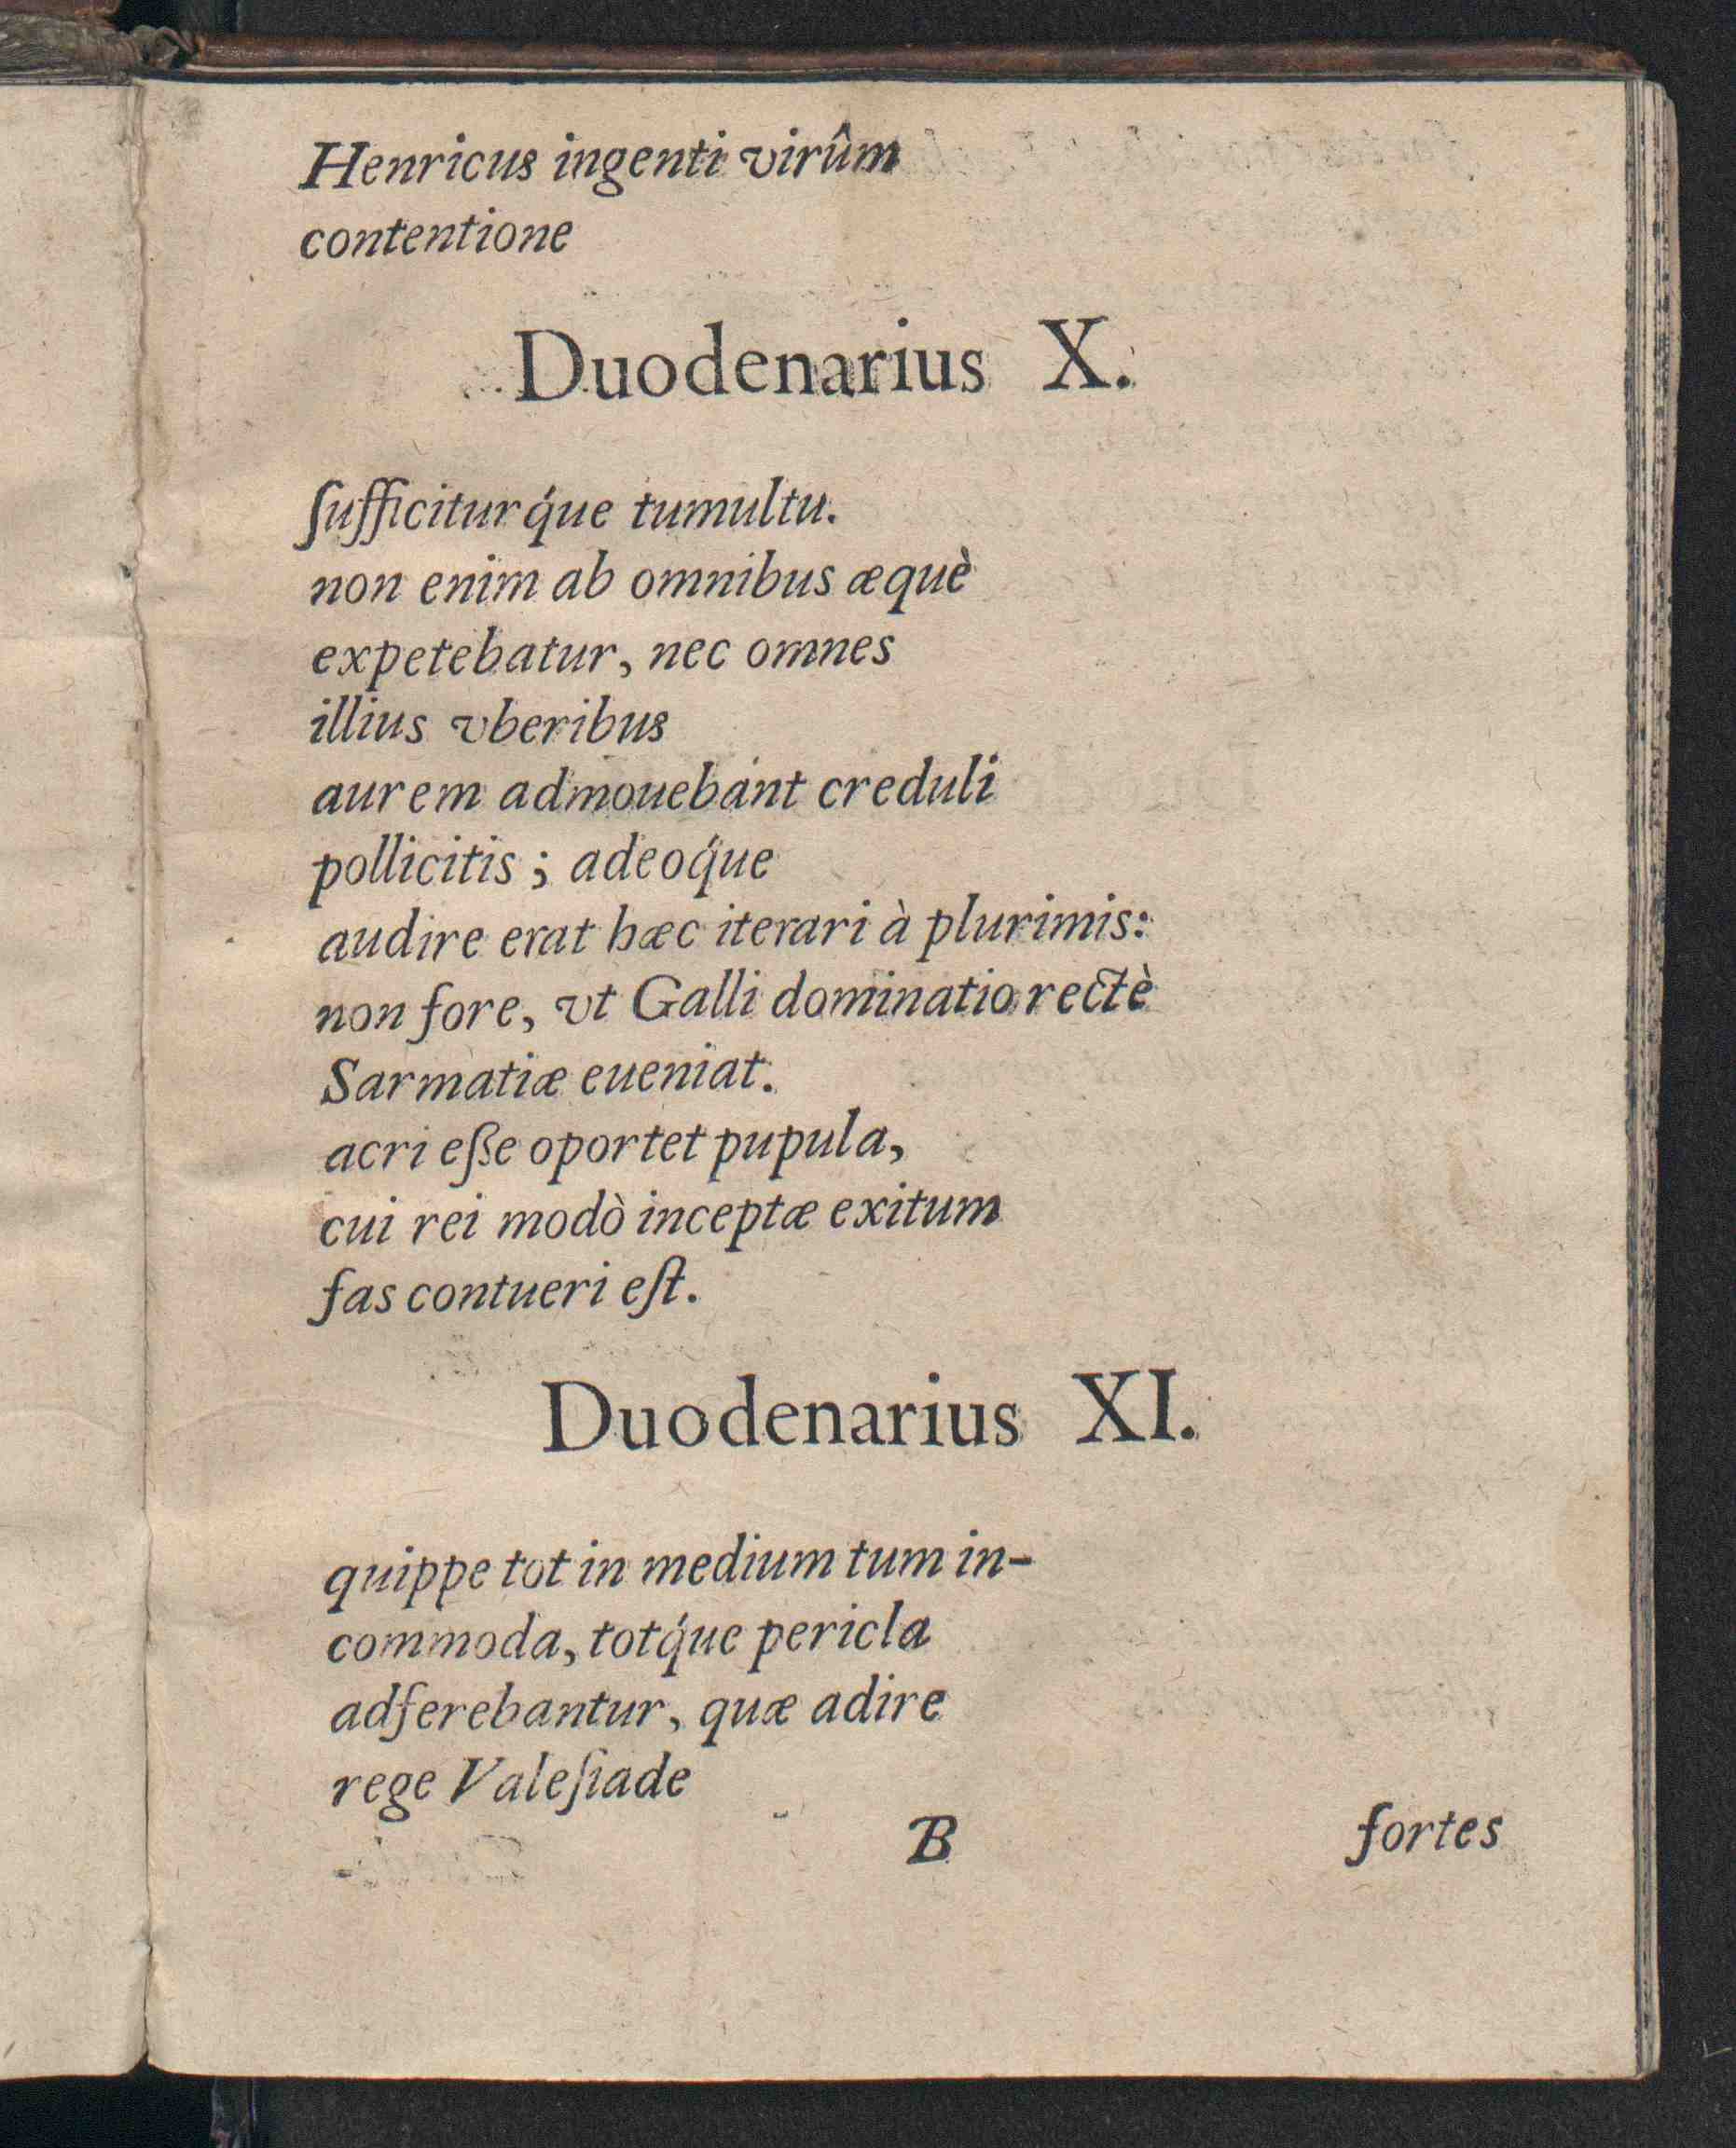 Henricus ingenti virûm
contentione
Duodenarius X.
ſufficiturq́ue tumultu.
non enim ab omnibus æquè
expetebatur, nec omnes
illius vberibus
aurem admouebant creduli
pollicitis ; adeoq́ue
audire erat hæc iterari à plurimis:
non fore, vt Galli dominatio rectè
Sarmatiæ eueniat.
acri eſſe oportet pupula,
cui rei modò inceptæ exitum
fas contueri eſt.
Duodenarius XI.
quippe tot in medium tum in-
commoda, totq́ue pericla
adferebantur, quæ adire
rege Valeſiade
B fortes